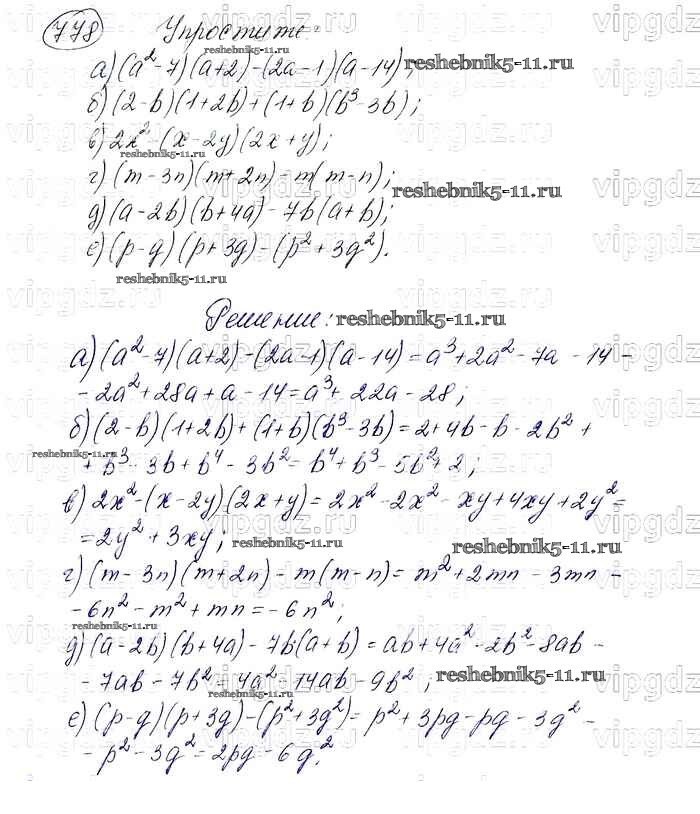 778 Упростите:
а) (a² - 7)(a + 2) - (2a - 1)(a - 14);
б) (2 - b)(1 + 2b) + (1 + b)(b³ - 3b);
в) 2x² - (x - 2y)(2x + y);
г) (m - 3n)(m + 2n) - m(m - n);
д) (a - 2b)(b + 4a) - 7b(a + b);
е) (p - q)(p + 3q) - (p² + 3q²).
Решение:
а) (a² - 7)(a + 2) - (2a - 1)(a - 14) = a³ + 2a² - 7a - 14 -
- 2a² + 28a + a - 14 = a³ + 22a - 28;
б) (2 - b)(1 + 2b) + (1 + b)(b³ - 3b) = 2 + 4b - b - 2b² +
+ b³ - 3b + b⁴ - 3b² = b⁴ + b³ - 5b² + 2;
в) 2x² - (x - 2y)(2x + y) = 2x² - 2x² - xy + 4xy + 2y² =
= 2y² + 3xy;
г) (m - 3n)(m + 2n) - m(m - n) = m² + 2mn - 3mn -
- 6n² - m² + mn = - 6n²;
д) (a - 2b)(b + 4a) - 7b(a + b) = ab + 4a² - 2b² - 8ab -
- 7ab - 7b² = 4a² - 14ab - 9b²;
е) (p - q)(p + 3q) - (p² + 3q²) = p² + 3pq - pq - 3q² -
- p² - 3q² = 2pq - 6q².
vipgdz.ru
reshebnik5-11.ru